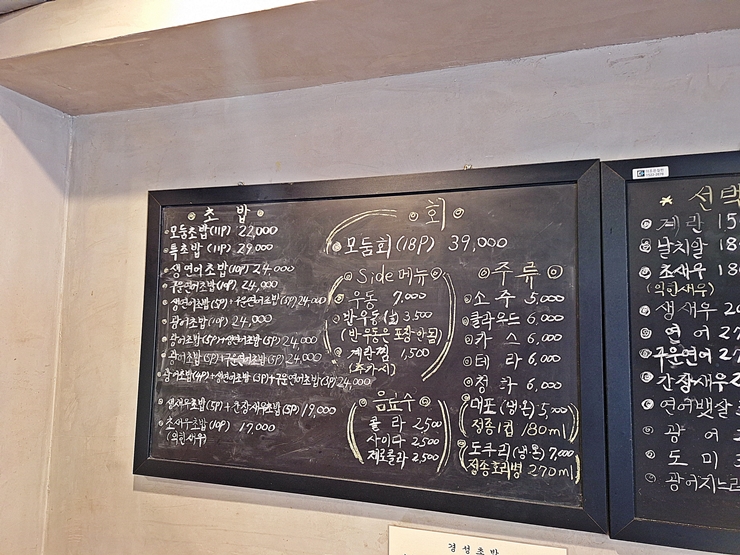 초밥
모둠초밥(11P) 22,000
특초밥(11P) 29,000
생연어초밥(10P) 24,000
구운연어초밥(10P) 24,000
생연어초밥(5P)+구운연어초밥(5P) 24,000
광어초밥(10P) 24,000
광어초밥(5P)+생연어초밥(5P) 24,000
광어초밥(5P)+구운연어초밥(5P) 24,000
광어초밥(4P)+생연어초밥(3P)+구운연어초밥(3P) 24,000
생새우초밥(5P)+간장새우초밥(5P) 19,000
초새우초밥(10P) 17,000
(익힌새우)
회
모둠회(18P) 39,000
Side 메뉴
우동 7,000
반우동(小) 3,500
(반우동은 포장안됨)
계란찜 1,500
(추가시)
음료수
콜라 2,500
사이다 2,500
제로콜라 2,500
주류
소주 5,000
클라우드 6,000
카스 6,000
테라 6,000
청하 6,000
대포(냉,온) 5,000
정종1컵 180ml
도쿠리(냉,온) 7,000
정종호리병 270ml
선택
계란 15
날치알 18
초새우 18
(익힌새우)
생새우 20
연어 27
구운연어 27
간장새우 2
연어뱃살
광어 2
도미
광어지느러
경성초밥